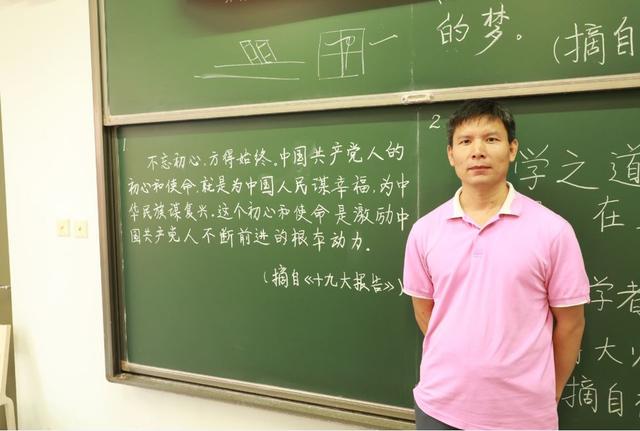 的梦。
（摘自
1
不忘初心，方得始终。中国共产党人的
初心和使命，就是为中国人民谋幸福，为中
华民族谋复兴。这个初心和使命是激励中
国共产党人不断前进的根本动力。
（摘自《十九大报告》）
2
学之道
在
学者
大
摘自